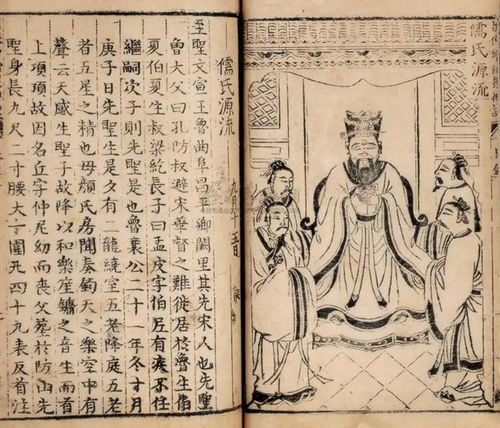 儒氏源流
儒氏源流
至聖文宣王魯曲阜昌平鄉闕里其先宋人也先聖
魯大父曰孔防叔避宋華督之難徙居於魯生伯
夏伯夏生叔梁紇長子曰孟皮字伯尼有疾不任
繼嗣次子則先聖是也魯襄公二十一年冬十月
庚子日先聖生是夕有二龍繞室五老降庭五老
者五星之精也母顏氏房聞奏鈞天之樂空中有
聲云天感生聖子故降以和樂笙鏞之音生而首
上項項故因名丘字仲尼幼而喪父墓於防山先
聖身長九尺二寸腰大十圍凡四十九表反首注